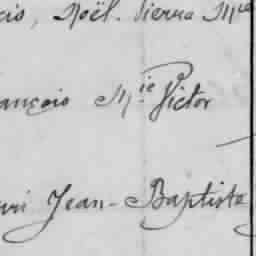 cis, Noël. Pierre Mie
ançois M.ie Victor
nri Jean-Baptiste